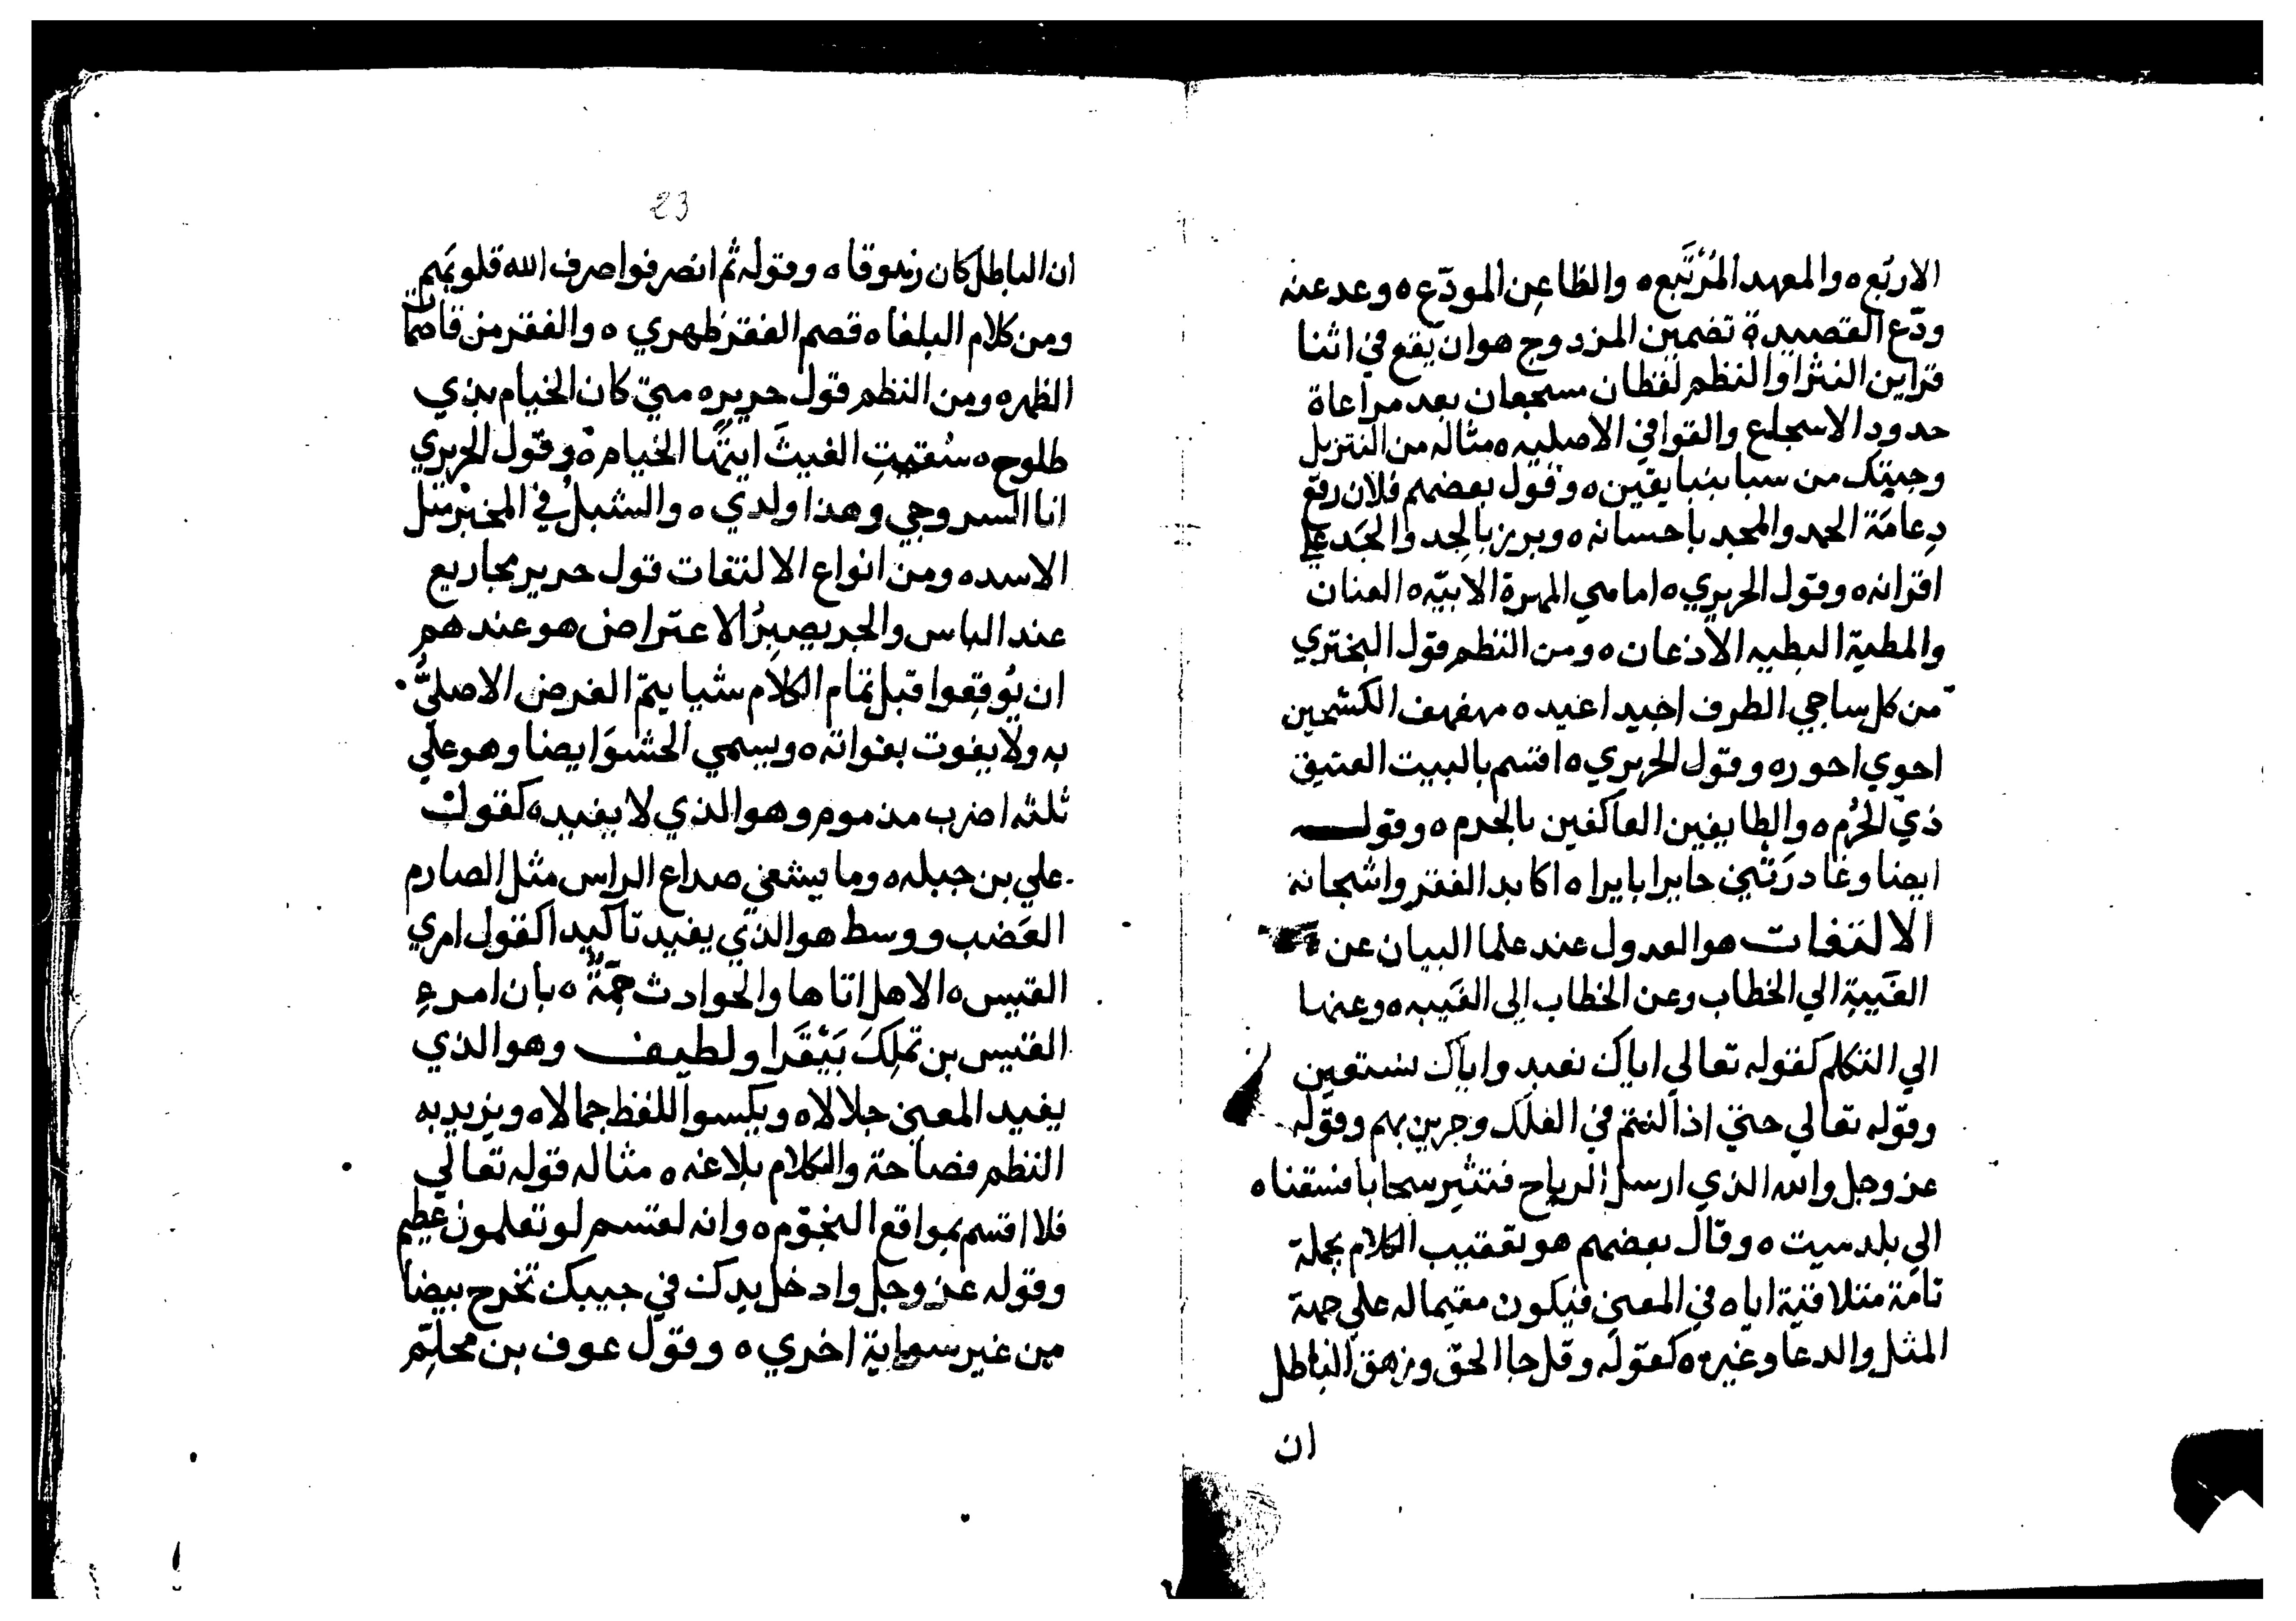 الاربع ه والمعهد المرتبع ه والظاعن المودع ه وعد عنه
ودع القصيدة تضمين المزدوج هو ان يقع في اثنا
قراين النثر او النظم لفظان مسجعان بعد مراعاة
حدود الاسجاع والقوافي الاصليه ه مثاله من التنزيل
وجيتك من سبا بنبا يقين ه وقول بعضهم فلان رفع
دِعامَة الحمد والمجد باحسانه ه وبرز بالجِد والجَد علي
اقرانه ه وقول الحريري ه اما هي المهرة الابيّه ه العنان
والمطية البطيه الاذعان ه ومن النظم قول البختري
من كل ساجي الطرف اجيد اغيد ه مهفهف الكشحين
احوي احور ه وقول الحريري ه اقسم بالبيت العتيق
ذي الحُرُم ه والطايفين العاكفين بالحرم ه وقوله
ايضا وغادرَتْني حايرا بايرا ه اكابد الفقر واشجانه
الالتفات هو العدول عند علما البيان عن
الغَيبة الي الخطاب وعن الخطاب الى الغَيبه ه وعنها
الي التكلم كقوله تعالي اياك نعبد واياك نستعين
وقوله تعالي حتي اذا كنتم في الفلك وجرين بهم وقوله
عز وجل والله الذي ارسل الرياح فتثير سحابا فسقناه
الي بلد ميت ه وقال بعضهم هو تعقيب الكلام بجملة
تامّة متلاقية اياه في المعني فيكون متمما له علي جهة
المثل والدعا وغيره ه كقوله وقل جا الحق وزهق الباطل
ان
23
ان الباطل كان زهوقا ه وقوله ثم انصرفوا صرف الله قلوبهم
ومن كلام البلغا ه قصم الفقر ظهري ه والفقر من قاصمات
الظهر ه ومن النظم قول جرير ه متي كان الخيام بذي
طلوح ه سُقيتِ الغيثَ ايتُها الخيام ه وقول الحريري
انا السروجي وهذا ولدي ه والشبلُ في المخبر مثل
الاسد ه ومن انواع الالتفات قول جرير مجاريع
عند الباس والحر يصبرُ الاعتراض هو عندهم
ان يُوقِعوا قبل تمام الكلام شيا يتمّ الغرض الاصليُّ
به ولا يفوت بفواته ه ويسمي الحشوَ ايضا وهو علي
ثلثه اضرب مذموم وهو الذي لا يفيد ه كقول
علي بن جبله ه وما يشفي صداع الراس مثل الصارم
العَضب ووسط هو الذي يفيد تاكيدا كقول امري
القيس ه الا هل اتاها والحوادث جَمّةٌ ه بأن امرءِ
القيس بن تملِكَ بَيْقَرا ولطيف وهو الذي
يفيد المعني جلالا ه ويكسوا اللفظ جمالا ه ويزيد به
النظم فصاحة والكلام بلاغه ه مثاله قوله تعالي
فلا اقسم بمواقع النجوم ه وانه لقسم لو تعلمون عظيم
وقوله عز وجل وادخل يدك في جيبك تخرج بيضا
من غير سو اية اخري ه وقول عوف بن محلِّم